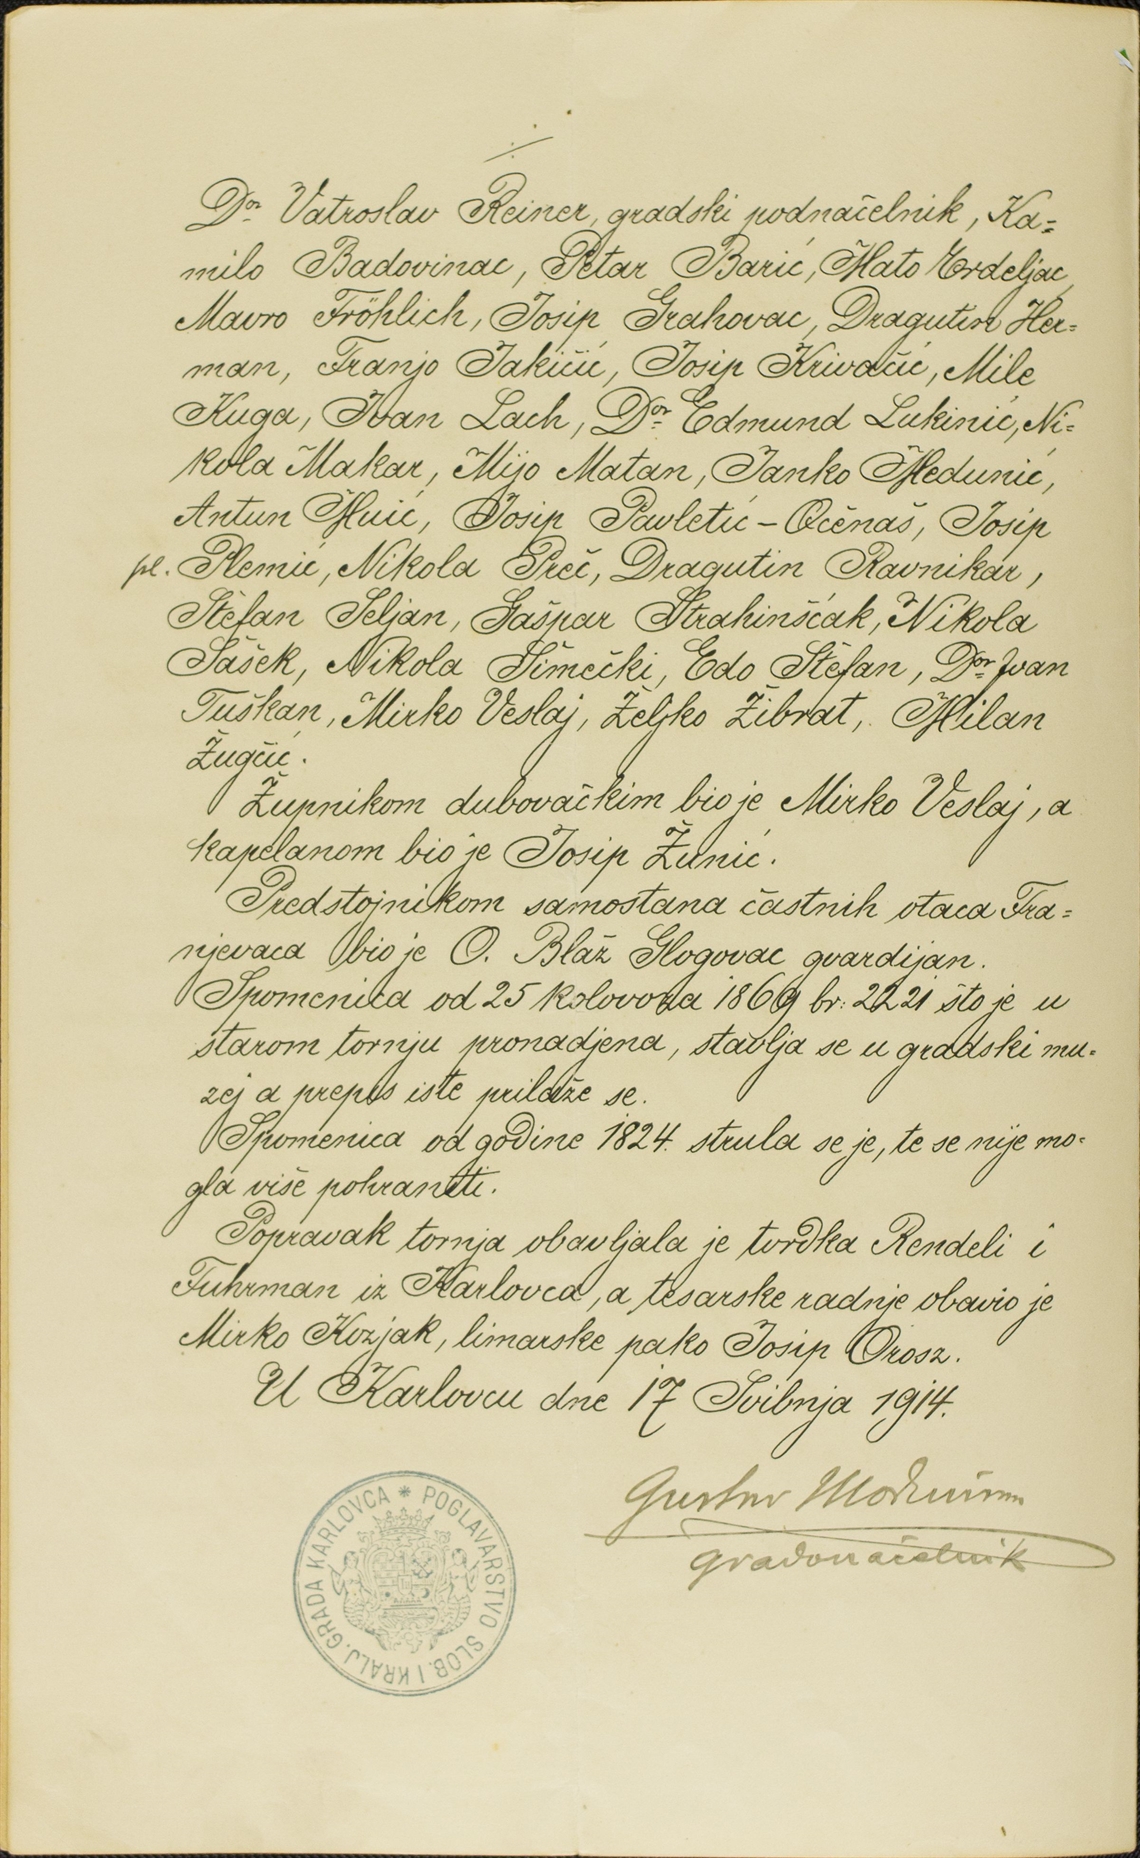 ./.
Dr. Vatroslav Reiner, gradski podnačelnik, Ka=
milo Badovinac, Petar Barić, Mato Erdeljac,
Mavro Fröhlich, Josip Grahovac, Dragutin Her=
man, Franjo Jakičić, Josip Krivačić, Mile
Kuga, Ivan Lach, Dr. Edmund Lukinić, Ni=
kola Makar, Mijo Matan, Janko Medunić,
Antun Muić, Josip Pavletić - Očenaš, Josip
pl. Plemić, Nikola Preč, Dragutin Ravnikar,
Stefan Seljan, Gašpar Strahinšćak, Nikola
Šašek, Nikola Šimečki, Edo Štefan, Dr. Ivan
Tuškan, Mirko Veslaj, Željko Žibrat, Milan
Žugčić.
Župnikom dubovačkim bio je Mirko Veslaj, a
kapelanom bio je Josip Žunić.
Predstojnikom samostana častnih otaca Fra=
njevaca bio je O. Blaž Glogovac gvardijan.
Spomenica od 25 kolovoza 1869 br: 2221 što je u
starom tornju pronadjena, stavlja se u gradski mu=
zej a prepis iste prilaže se.
Spomenica od godine 1824. strula se je, te se nije mo=
gla više pohraniti.
Popravak tornja obavljala je tvrdka Rendeli i
Fuhrman iz Karlovca, a tesarske radnje obavio je
Mirko Kozjak, limarske pako Josip Orosz.
U Karlovcu dne 17 Svibnja 1914.
Gustav Modrušan
gradonačelnik
POGLAVARSTVO SLOB. I KRALJ. GRADA KARLOVCA *